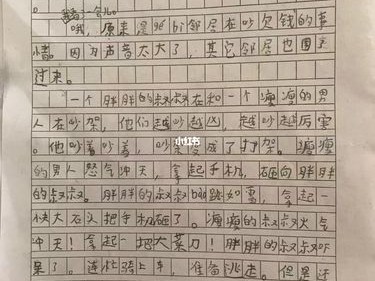 我看一会儿。
哦，原来是隔bì邻居在吵欠钱的事
情。因为声音太大了，其它邻居也围
过来。
一个胖胖的叔叔在和一个瘦瘦的男
人在吵架，他们越吵越凶，越吵越厉害
。他吵着吵着，吵架变成了打架。瘦瘦
的男人怒气冲天，拿起手机，砸向胖胖
的叔叔。胖胖的叔叔bào跳如雷，拿起一
快大石头把手机砸了。瘦瘦的叔叔火气
冲天！拿起一把大菜刀！胖胖的叔叔吓
呆了。连忙骑上车，准备逃走。但是还
小红书